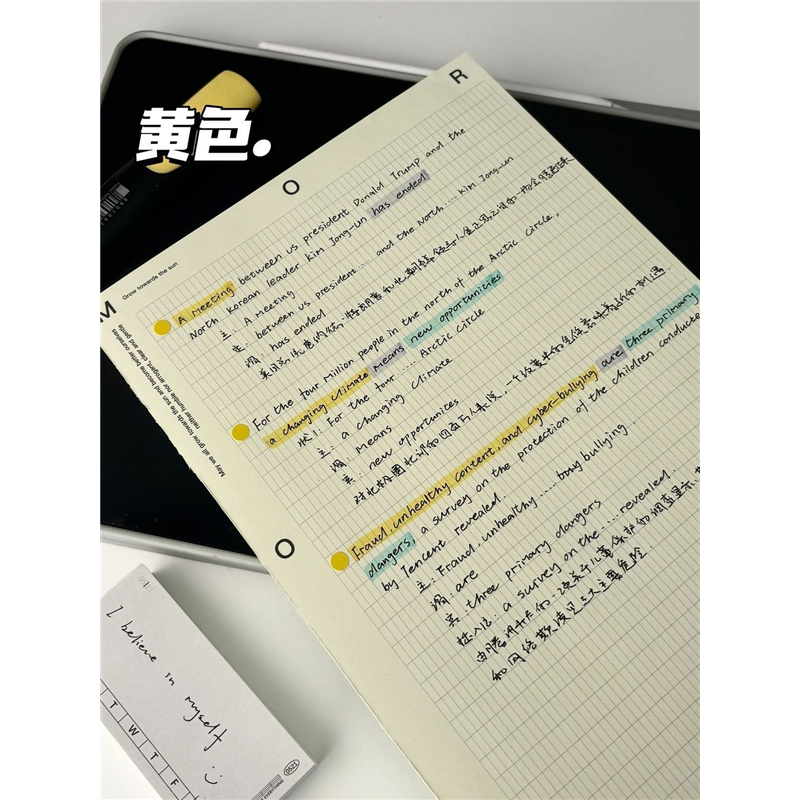 黄色.
R
O
M
Grow towards the sun
May we all grow towards the sun and become better ourselves
neither humble nor arrogant, clear and gentle
A meeting between us president Donald Trump and the
North Korean leader Kim Jong-un has ended
主: A meeting
定: between us president .... and the North .... Kim Jong-un
谓: has ended
美国总统唐纳德·特朗普和北朝鲜领导人金正恩之间的一场会晤
For the four million people in the north of the Arctic Circle,
a changing climate means new opportunities
状1: For the four .... Arctic Circle
主: a changing climate
谓: means
宾: new opportunites
对北极圈北部的四百万人来说,一个改变中的气候意味着新的机遇
O
Fraud, unhealthy content, and cyber-bullying are three primary
dangers, a survey on the protection of the children conducte
by Tencent revealed.
主: Fraud, unhealthy ..... bullying.
谓: are
宾: three primary dangers
插入语: a survey on the ... revealed.
由腾讯开展的一项关于儿童保护的调查显示
和网络欺凌是三大主要危险
I believe in myself
T
W
T
F
0521